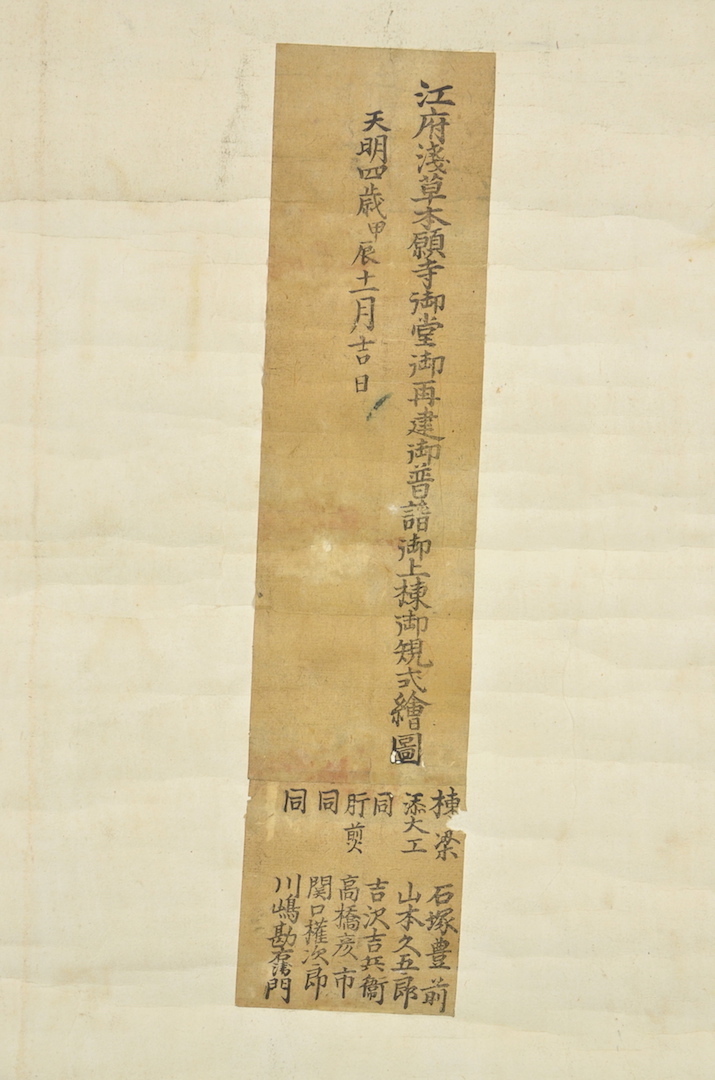 江府淺草本願寺御堂御再建御普請御上棟御規式繪圖
天明四歳甲辰十一月吉日
棟梁 石塚豊前
添大工 山本久五郎
同 吉沢吉兵衛
肝煎 高橋彦市
同 関口權次郎
同 川嶋勘右衛門